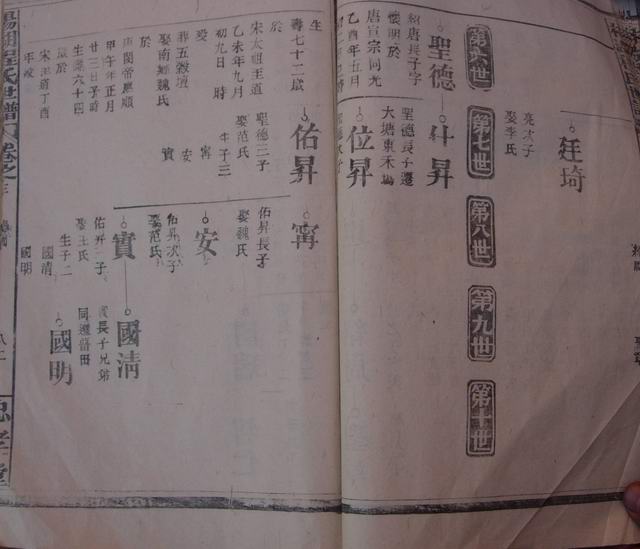 廷埼
亮次子
娶李氏
第六世
第七世
第八世
第九世
第十世
聖德
紹唐長子字
懷明於
唐宣宗同光
乙酉年五月
什昇
聖德長子遷
大塘東禾塲
位昇
生
壽七十二歲
於
宋太祖王道
乙未年九月
初九日 時
葬五穀壇
娶南鄉魏氏
於
唐閔帝應順
甲午年正月
廿三日子時
生 壽六十四
歲於
宋 道丁酉
年歿
佑昇
聖德三子
娶范氏
生子三
甯
安
實
甯
佑昇長子
娶魏氏
安
佑昇次子
娶范氏
實
佑昇三子
娶王氏
生子二
國清
國明
國清
實長子兄弟
同遷莆田
國明
湯湖程氏世譜 卷之三
八二
忠孝堂